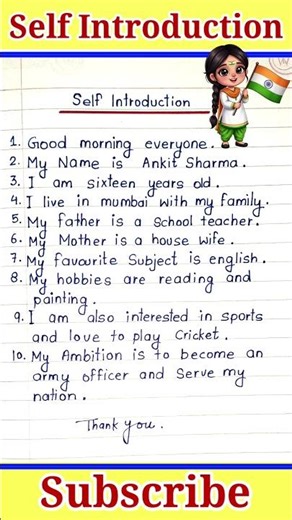 Self Introduction
Self Introduction
1. Good morning everyone.
2. My Name is Ankit Sharma.
3. I am sixteen years old.
4. I live in mumbai with my family.
5. My father is a School teacher.
6. My Mother is a house wife.
7. My favourite Subject is english.
8. My hobbies are reading and
painting.
9. I am also interested in sports
and love to play Cricket.
10. My Ambition is to become an
army officer and Serve my
nation.
Thank you.
Subscribe